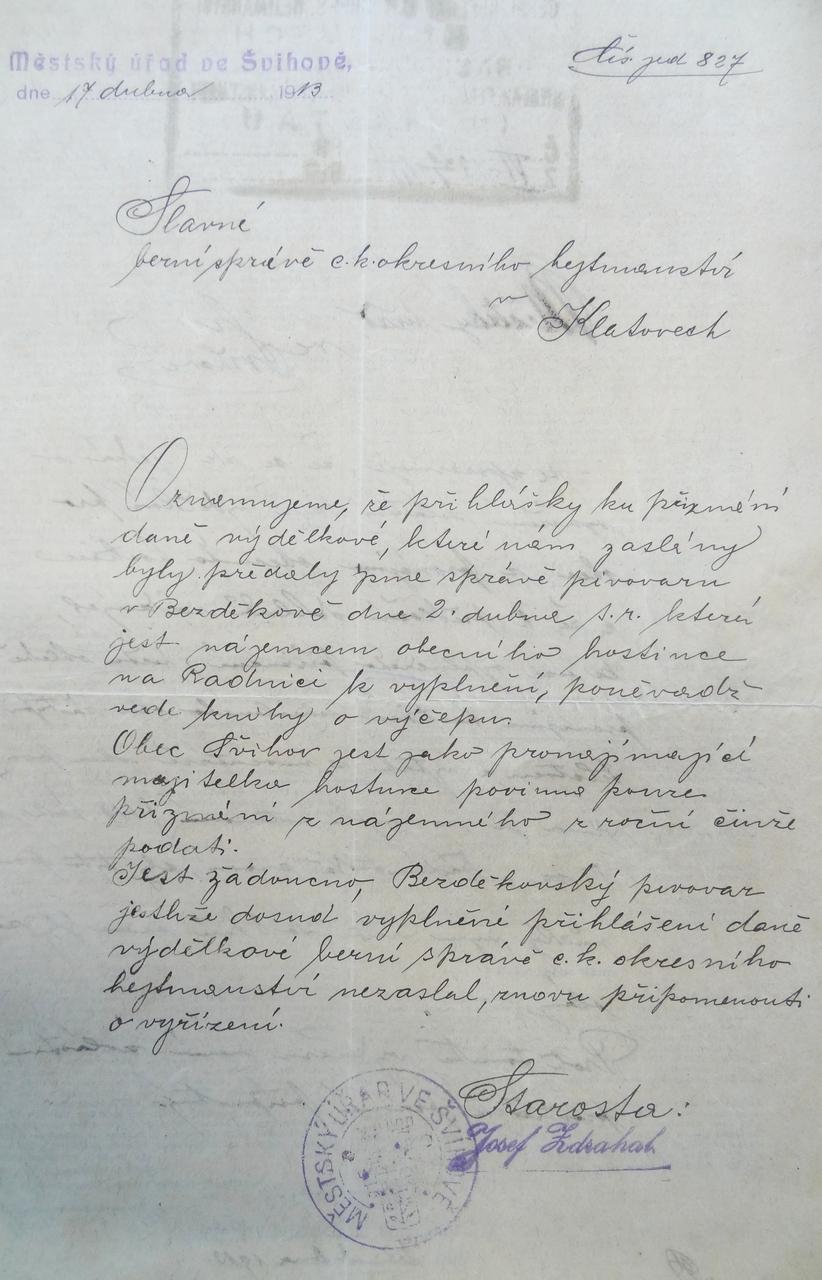 Městský úřad ve Švihově,
čís. jed 827
dne 17 dubna 1913.
Slavné
berní správě c.k. okresního hejtmanství
v
Klatovech
Oznamujeme, že přihlášky ku přiznání
daně výdělkové, které nám zaslány
byly předaly jsme správě pivovaru
v Bezděkově dne 2. dubna t.r. která
jest nájemcem obecního hostince
na Radnici k vyplnění, poněvadž
vede knihy o výčepu.
Obec Švihov jest jako pronajímající
majitelka hostince povinna pouze
přiznání z nájemného z roční činže
podati.
Jest žádoucno, Bezděkovský pivovar
jestliže dosud vyplněné přihlášení daně
výdělkové berní správě c.k. okresního
hejtmanství nezaslal, znovu připomenouti
o vyřízení.
Starosta:
Josef Zdrahal
MĚSTSKÝ ÚŘAD VE ŠVIHOVĚ